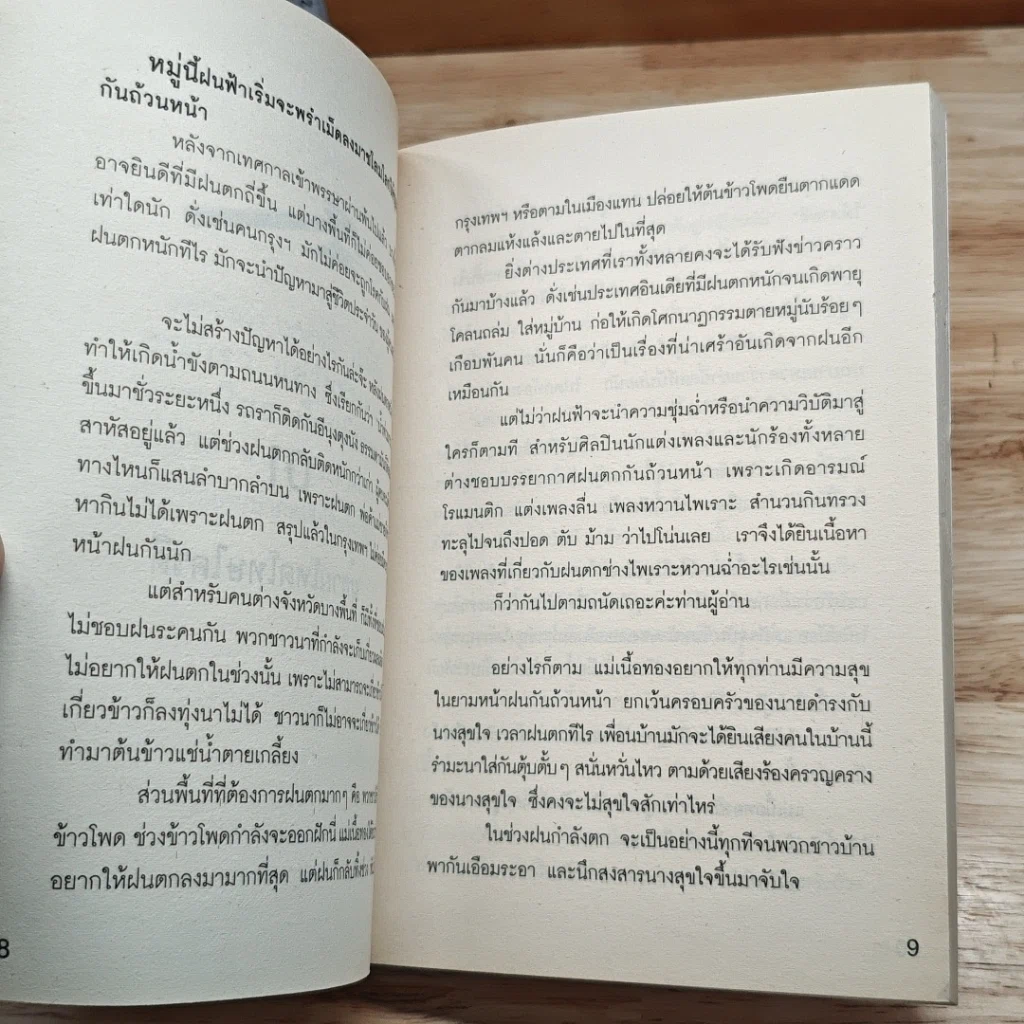 หมู่นี้ฝนฟ้าเริ่มจะพรำเม็ดลงมา
กันถ้วนหน้า
หลังจากเทศกาลเข้าพรรษาผ่าน
อาจยินดีที่มีฝนตกถี่ขึ้น แต่บางพื้นที่ก็ไม่ค่อย
เท่าใดนัก ดั่งเช่นคนกรุงฯ มักไม่ค่อยจะถูก
ฝนตกหนักทีไร มักจะนำปัญหามาสู่ชีวิตประจำวัน
จะไม่สร้างปัญหาได้อย่างไรกันล่ะจ๊ะ
ทำให้เกิดน้ำขังตามถนนหนทาง ซึ่งเรียกกันว่า
ขึ้นมาชั่วระยะหนึ่ง รถราก็ติดกันอีนุงตุงนัง
สาหัสอยู่แล้ว แต่ช่วงฝนตกกลับติดหนักกว่าเก่า
ทางไหนก็แสนลำบากลำบน เพราะฝนตก
หากินไม่ได้เพราะฝนตก สรุปแล้วในกรุงเทพฯ
หน้าฝนกันนัก
แต่สำหรับคนต่างจังหวัดบางพื้นที่
ไม่ชอบฝนระคนกัน พวกชาวนาที่กำลังจะเก็บเกี่ยว
ไม่อยากให้ฝนตกในช่วงนั้น เพราะไม่สามารถจะ
เกี่ยวข้าวก็ลงทุ่งนาไม่ได้ ชาวนาก็ไม่อาจจะ
ทำมาต้นข้าวแช่น้ำตายเกลี้ยง
ส่วนพื้นที่ที่ต้องการฝนตกมากๆ คือ
ข้าวโพด ช่วงข้าวโพดกำลังจะออกฝักนี่
อยากให้ฝนตกลงมามากที่สุด แต่ฝนก็กลับ
8
กรุงเทพฯ หรือตามในเมืองแทน ปล่อยให้ต้นข้าวโพดยืนตากแดด
ตากลมแห้งแล้งและตายไปในที่สุด
ยิ่งต่างประเทศที่เราทั้งหลายคงจะได้รับฟังข่าวคราว
กันมาบ้างแล้ว ดั่งเช่นประเทศอินเดียที่มีฝนตกหนักจนเกิดพายุ
โคลนถล่ม ใส่หมู่บ้าน ก่อให้เกิดโศกนาฏกรรมตายหมู่นับร้อยๆ
เกือบพันคน นั่นก็คือว่าเป็นเรื่องที่น่าเศร้าอันเกิดจากฝนอีก
เหมือนกัน
แต่ไม่ว่าฝนฟ้าจะนำความชุ่มฉ่ำหรือนำความวิบัติมาสู่
ใครก็ตามที สำหรับศิลปินนักแต่งเพลงและนักร้องทั้งหลาย
ต่างชอบบรรยากาศฝนตกกันถ้วนหน้า เพราะเกิดอารมณ์
โรแมนติก แต่งเพลงลื่น เพลงหวานไพเราะ สำนวนกินทรวง
ทะลุไปจนถึงปอด ตับ ม้าม ว่าไปโน่นเลย เราจึงได้ยินเนื้อหา
ของเพลงที่เกี่ยวกับฝนตกช่างไพเราะหวานฉ่ำอะไรเช่นนั้น
ก็ว่ากันไปตามถนัดเถอะค่ะท่านผู้อ่าน
อย่างไรก็ตาม แม่เนื้อทองอยากให้ทุกท่านมีความสุข
ในยามหน้าฝนกันถ้วนหน้า ยกเว้นครอบครัวของนายดำรงกับ
นางสุขใจ เวลาฝนตกทีไร เพื่อนบ้านมักจะได้ยินเสียงคนในบ้านนี้
รำมะนาใส่กันตุ้บตั้บๆ สนั่นหวั่นไหว ตามด้วยเสียงร้องครวญคราง
ของนางสุขใจ ซึ่งคงจะไม่สุขใจสักเท่าไหร่
ในช่วงฝนกำลังตก จะเป็นอย่างนี้ทุกทีจนพวกชาวบ้าน
พากันเอือมระอา และนึกสงสารนางสุขใจขึ้นมาจับใจ
9